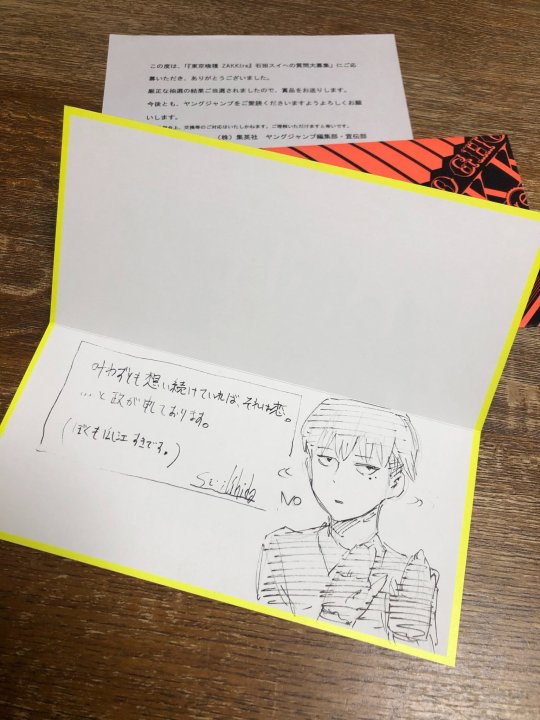 この度は、「『東京喰種 ZAKKI:re』石田スイへの質問大募集」にご応
募いただき、ありがとうございました。
厳正な抽選の結果ご当選されましたので、賞品をお送りします。
今後とも、ヤングジャンプをご愛読くださいますようよろしくお願
いします。
交換等のご対応はいたしかねます。ご理解いただけますと幸いです。
(株)集英社 ヤングジャンプ編集部・宣伝部
叶わずとも想い続けていれば、それは恋。
…と政が申しております。
(ぼくも
すきです。)
Sui Ishida
NO